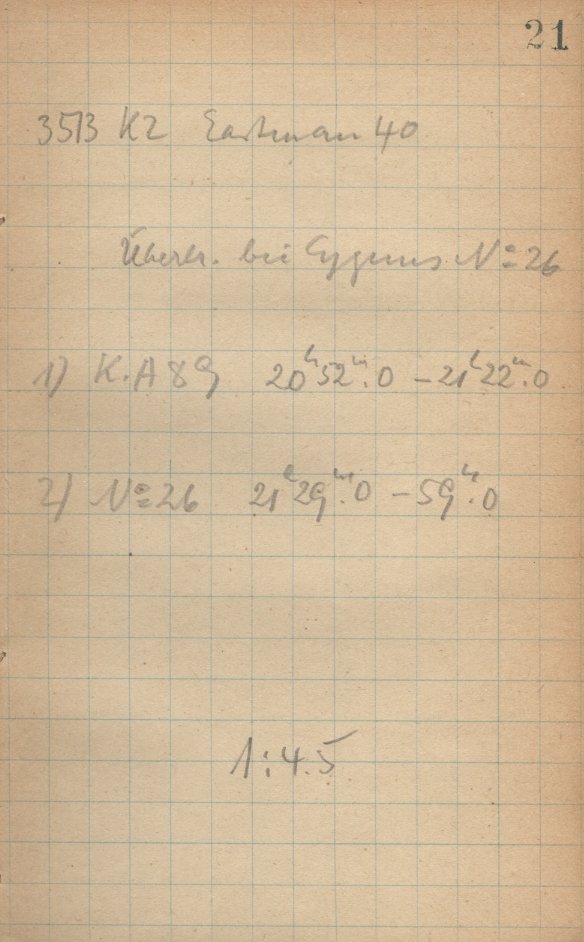 21
3513 K2 Eastman 40
Überbr. bei Cygnus Nº 26
1) K.A 89 20ʰ52ᵐ.0 – 21ʰ22ᵐ.0
2) Nº 26 21ʰ29ᵐ.0 – 59ᵐ.0
1:4.5